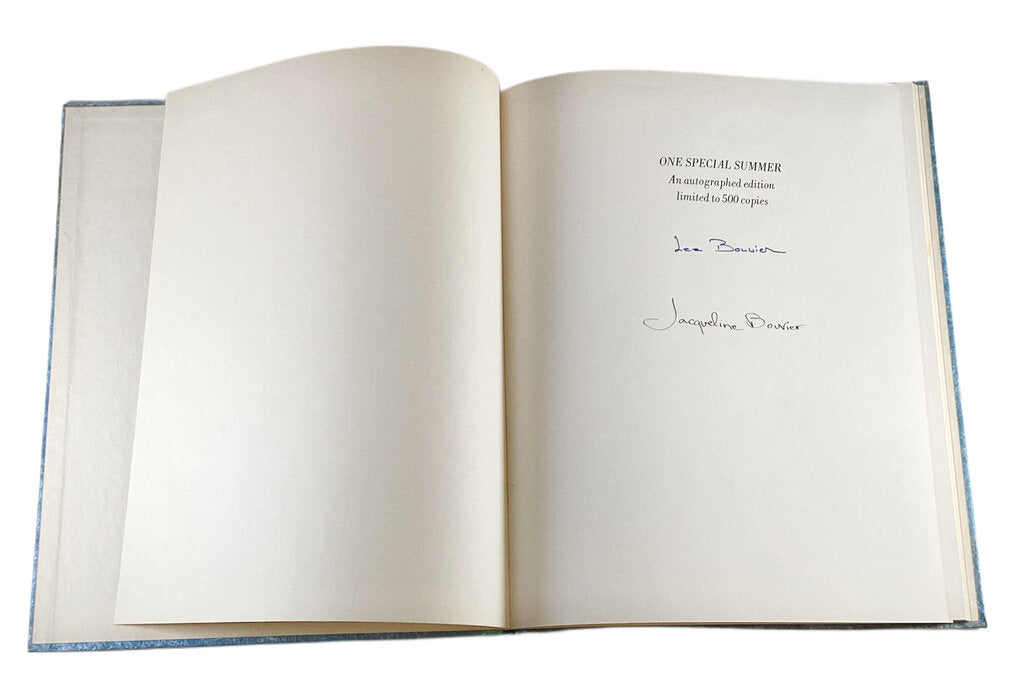 ONE SPECIAL SUMMER
An autographed edition
limited to 500 copies
Lee Bouvier
Jacqueline Bouvier